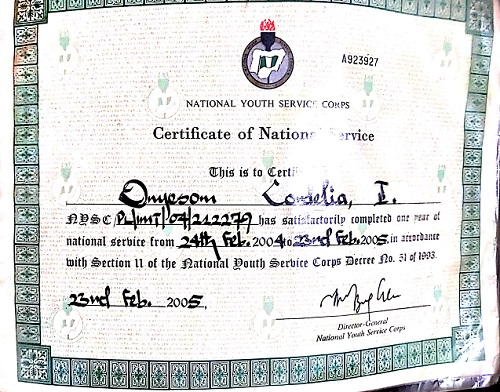 A923927
NATIONAL YOUTH SERVICE CORPS
Certificate of National Service
This is to Certi
Onyesom Cordelia, I.
NYSC/PL/IMT/04/212279 has satisfactorily completed one year of
national service from 24th Feb. 2004 to 23rd Feb. 2005, in accordance
with Section 11 of the National Youth Service Corps Decree No. 51 of 1993.
23rd Feb. 2005.
Director-General
National Youth Service Corps